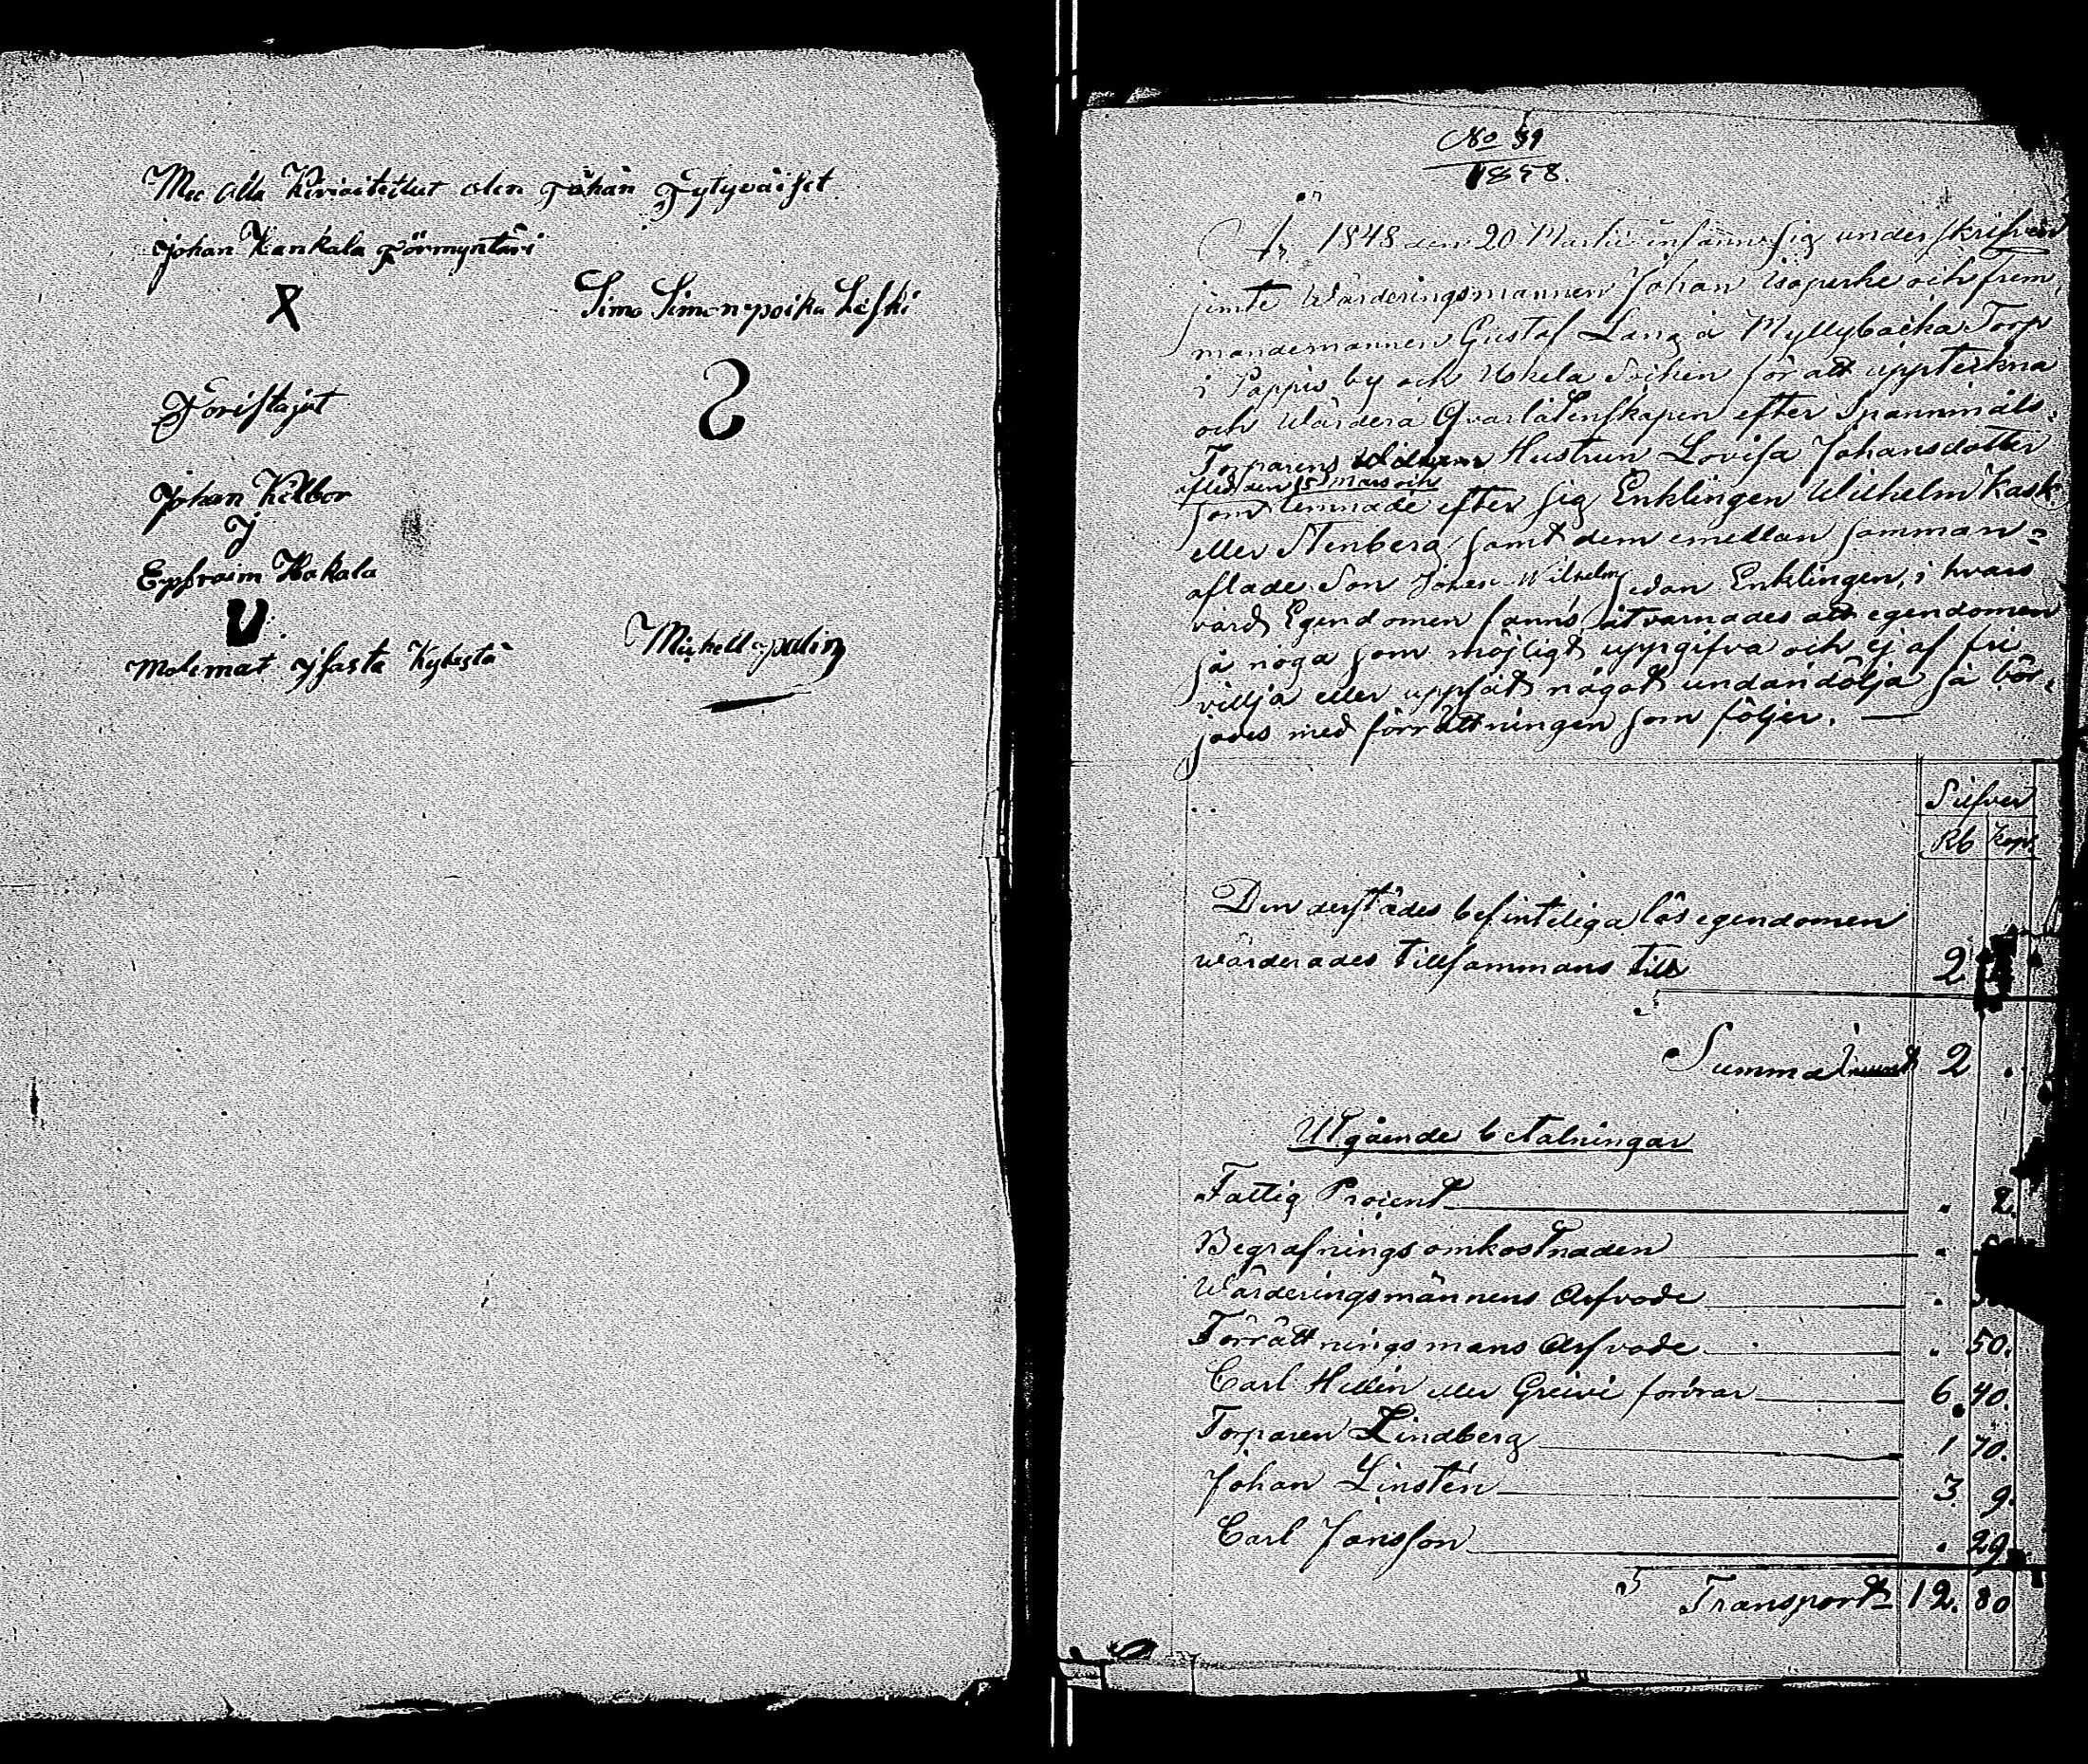 Mee Alla Kirioitettut olen Tähän Tytyväiset
Johan Kankala Förmyntäri
X
Simo Simonpoika Leski
S
Toristajat
Johan Killbor
J
Ephraim Hakala
U
Molemat Jsasta Kylästä
Michell
No 39
1848.
År 1848 den 20 Martii infann sig underskrifven
jemte Wärderingsmannen Johan Isoperhe och frem
mandemannen Gustaf Lang å Myllybacka Torp
i Pappis by och Uskela Sockn för att uppteckna
och Wärdera Qvarlåtenskapen efter Spannmåls
Torparens Hustrun Lovisa Johansdotter
afled den 15 Mars och
som lemnade efter sig Enklingen Wilhelm Kask
eller Stenberg samt dem emellan samman=
aflade Son Johan Wilhelm sedan Enklingen, i hvars
vård Egendomen fanns åtvarnades att egendomen
så noga som möjligt uppgifva och ej af fri
villja eller uppsåt något undandölja så bör=
jades med förrättningen som följer. —
Silfver
Rb Kop.
Den derstädes befinteliga lösegendomen
wärderades tillsammans till 2
Summa 2 .
Utgående betalningar
Fattig Procent . 2.
Begrafnings omkostnaden .
Wärderingsmännens Arfvode .
Förrättningsmans Arfvode . 50.
Carl Hellén eller Greivi fordrar 6. 40.
Torparen Lindberg 1 70.
Johan Linstén 3. 9.
Carl Jansson . 29
Transport 12. 80